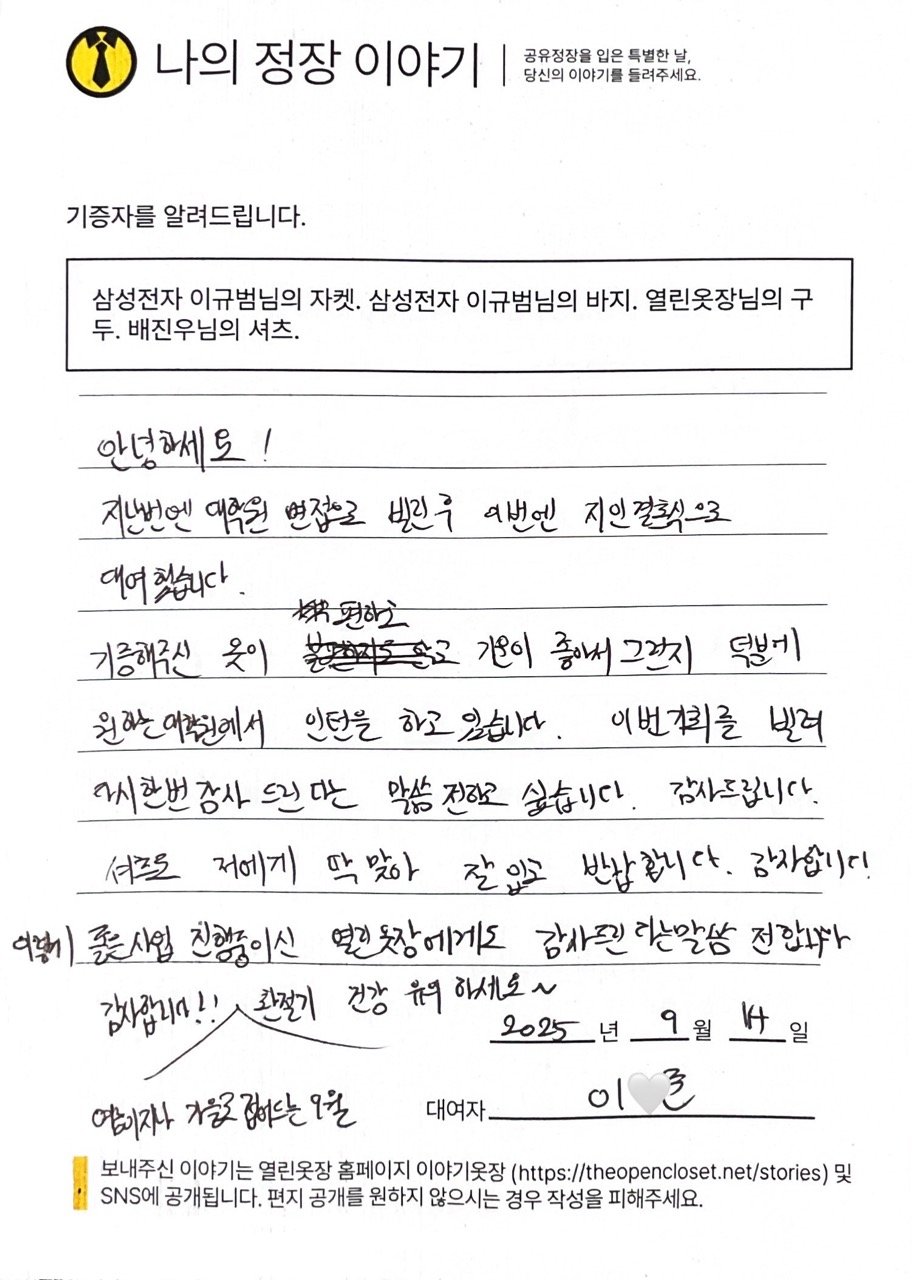 나의 정장 이야기
공유정장을 입은 특별한 날,
당신의 이야기를 들려주세요.
기증자를 알려드립니다.
삼성전자 이규범님의 자켓. 삼성전자 이규범님의 바지. 열린옷장님의 구
두. 배진우님의 셔츠.
안녕하세요!
지난번엔 대학원 면접으로 빌린 후 이번엔 지인결혼식으로
대여했습니다.
편하고
기증해주신 옷이 기운이 좋아서 그런지 덕분에
원하는 대학원에서 인턴을 하고 있습니다. 이번기회를 빌려
다시한번 감사드린다는 말씀 전하고 싶습니다. 감사드립니다.
셔츠도 저에게 딱 맞아 잘 입고 반납합니다. 감사합니다!
이렇게 좋은 사업 진행중이신 열린옷장에게도 감사드린다는말씀 전합니다
감사합니다!! 환절기 건강 유의하세요~
2025년 9월 14일
여름이지나 가을로 접어드는 9월
대여자 이🤍준
보내주신 이야기는 열린옷장 홈페이지 이야기옷장 (https://theopencloset.net/stories) 및
SNS에 공개됩니다. 편지 공개를 원하지 않으시는 경우 작성을 피해주세요.